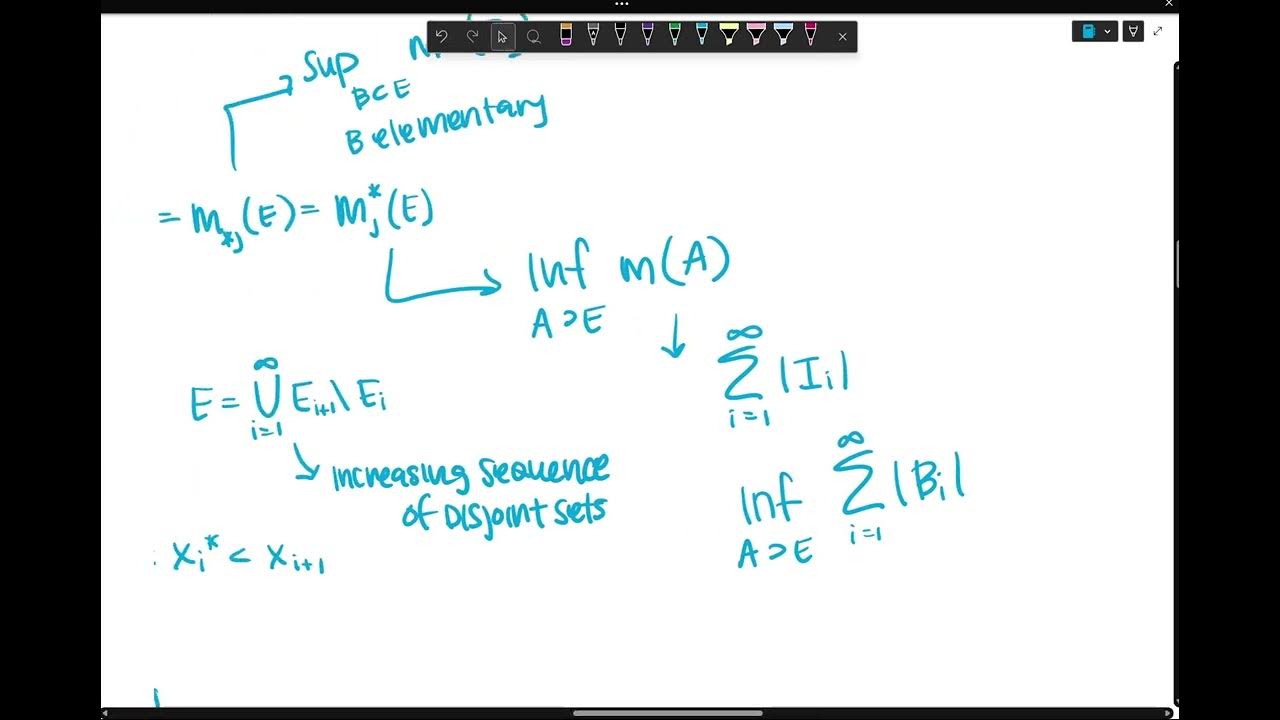 Sup
B⊂E
B elementary
= m_{*,j}(E) = m^{*}_{j}(E)
Inf m(A)
A⊃E
E = ∪_{i=1}^{∞} E_{i+1} \ E_i
∑_{i=1}^{∞} |I_i|
Increasing sequence
of Disjoint sets
Inf ∑_{i=1}^{∞} |B_i|
A⊃E
: x_i^* < x_{i+1}